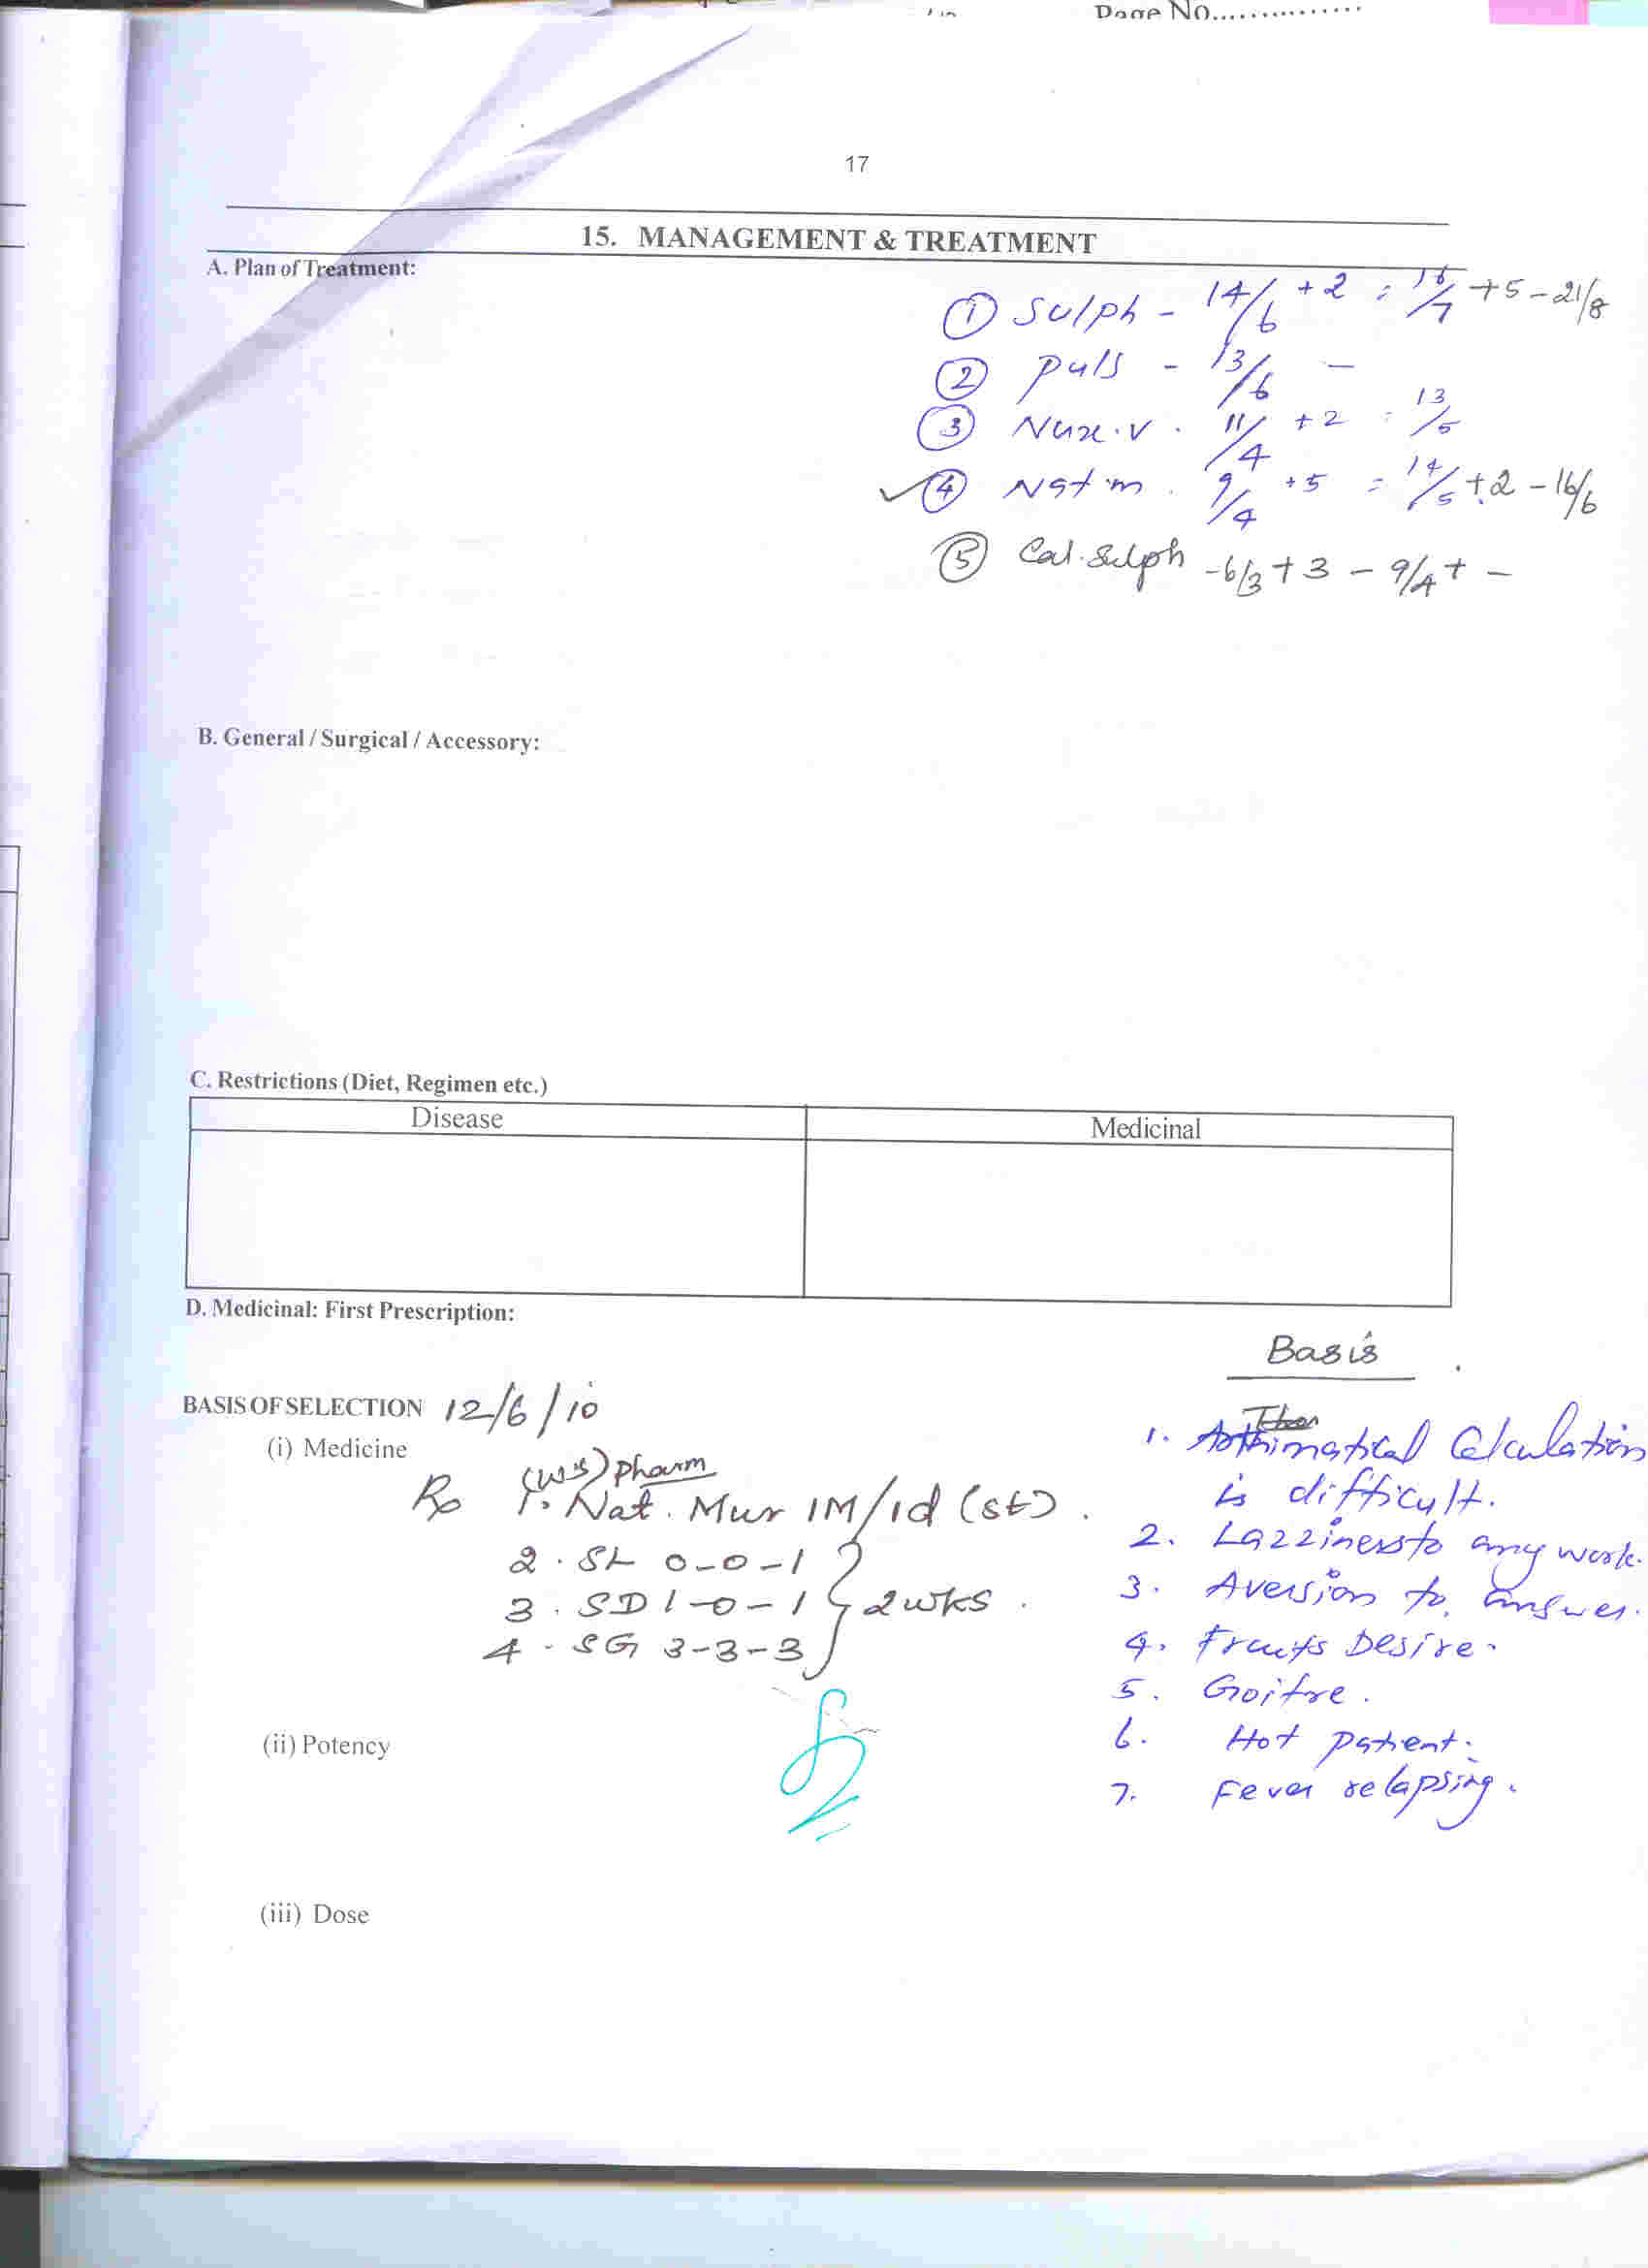 Page No...............
17
15. MANAGEMENT & TREATMENT
A. Plan of Treatment:
① Sulph - 14/6 + 2 = 16/7 + 5 - 21/8
② Puls - 13/6 -
③ Nux.v. 11/4 + 2 = 13/5
✓④ Nat.m. 9/4 + 5 = 14/5 + 2 - 16/6
⑤ Cal.Sulph - 6/3 + 3 - 9/4 + -
B. General / Surgical / Accessory:
C. Restrictions (Diet, Regimen etc.)
Disease Medicinal
D. Medicinal: First Prescription:
Basis
BASIS OF SELECTION 12/6/10
(i) Medicine
pharm
Rx 1. Nat. Mur 1M/1d (st).
2. SL 0-0-1
3. SD 1-0-1 } 2wks.
4. SG 3-3-3
(ii) Potency
(iii) Dose
1. Arithmatical Calculation
is difficult.
2. Lazziness to any work.
3. Aversion to answer.
4. Fruits Desire.
5. Goitre.
6. Hot patient.
7. Fever relapsing.